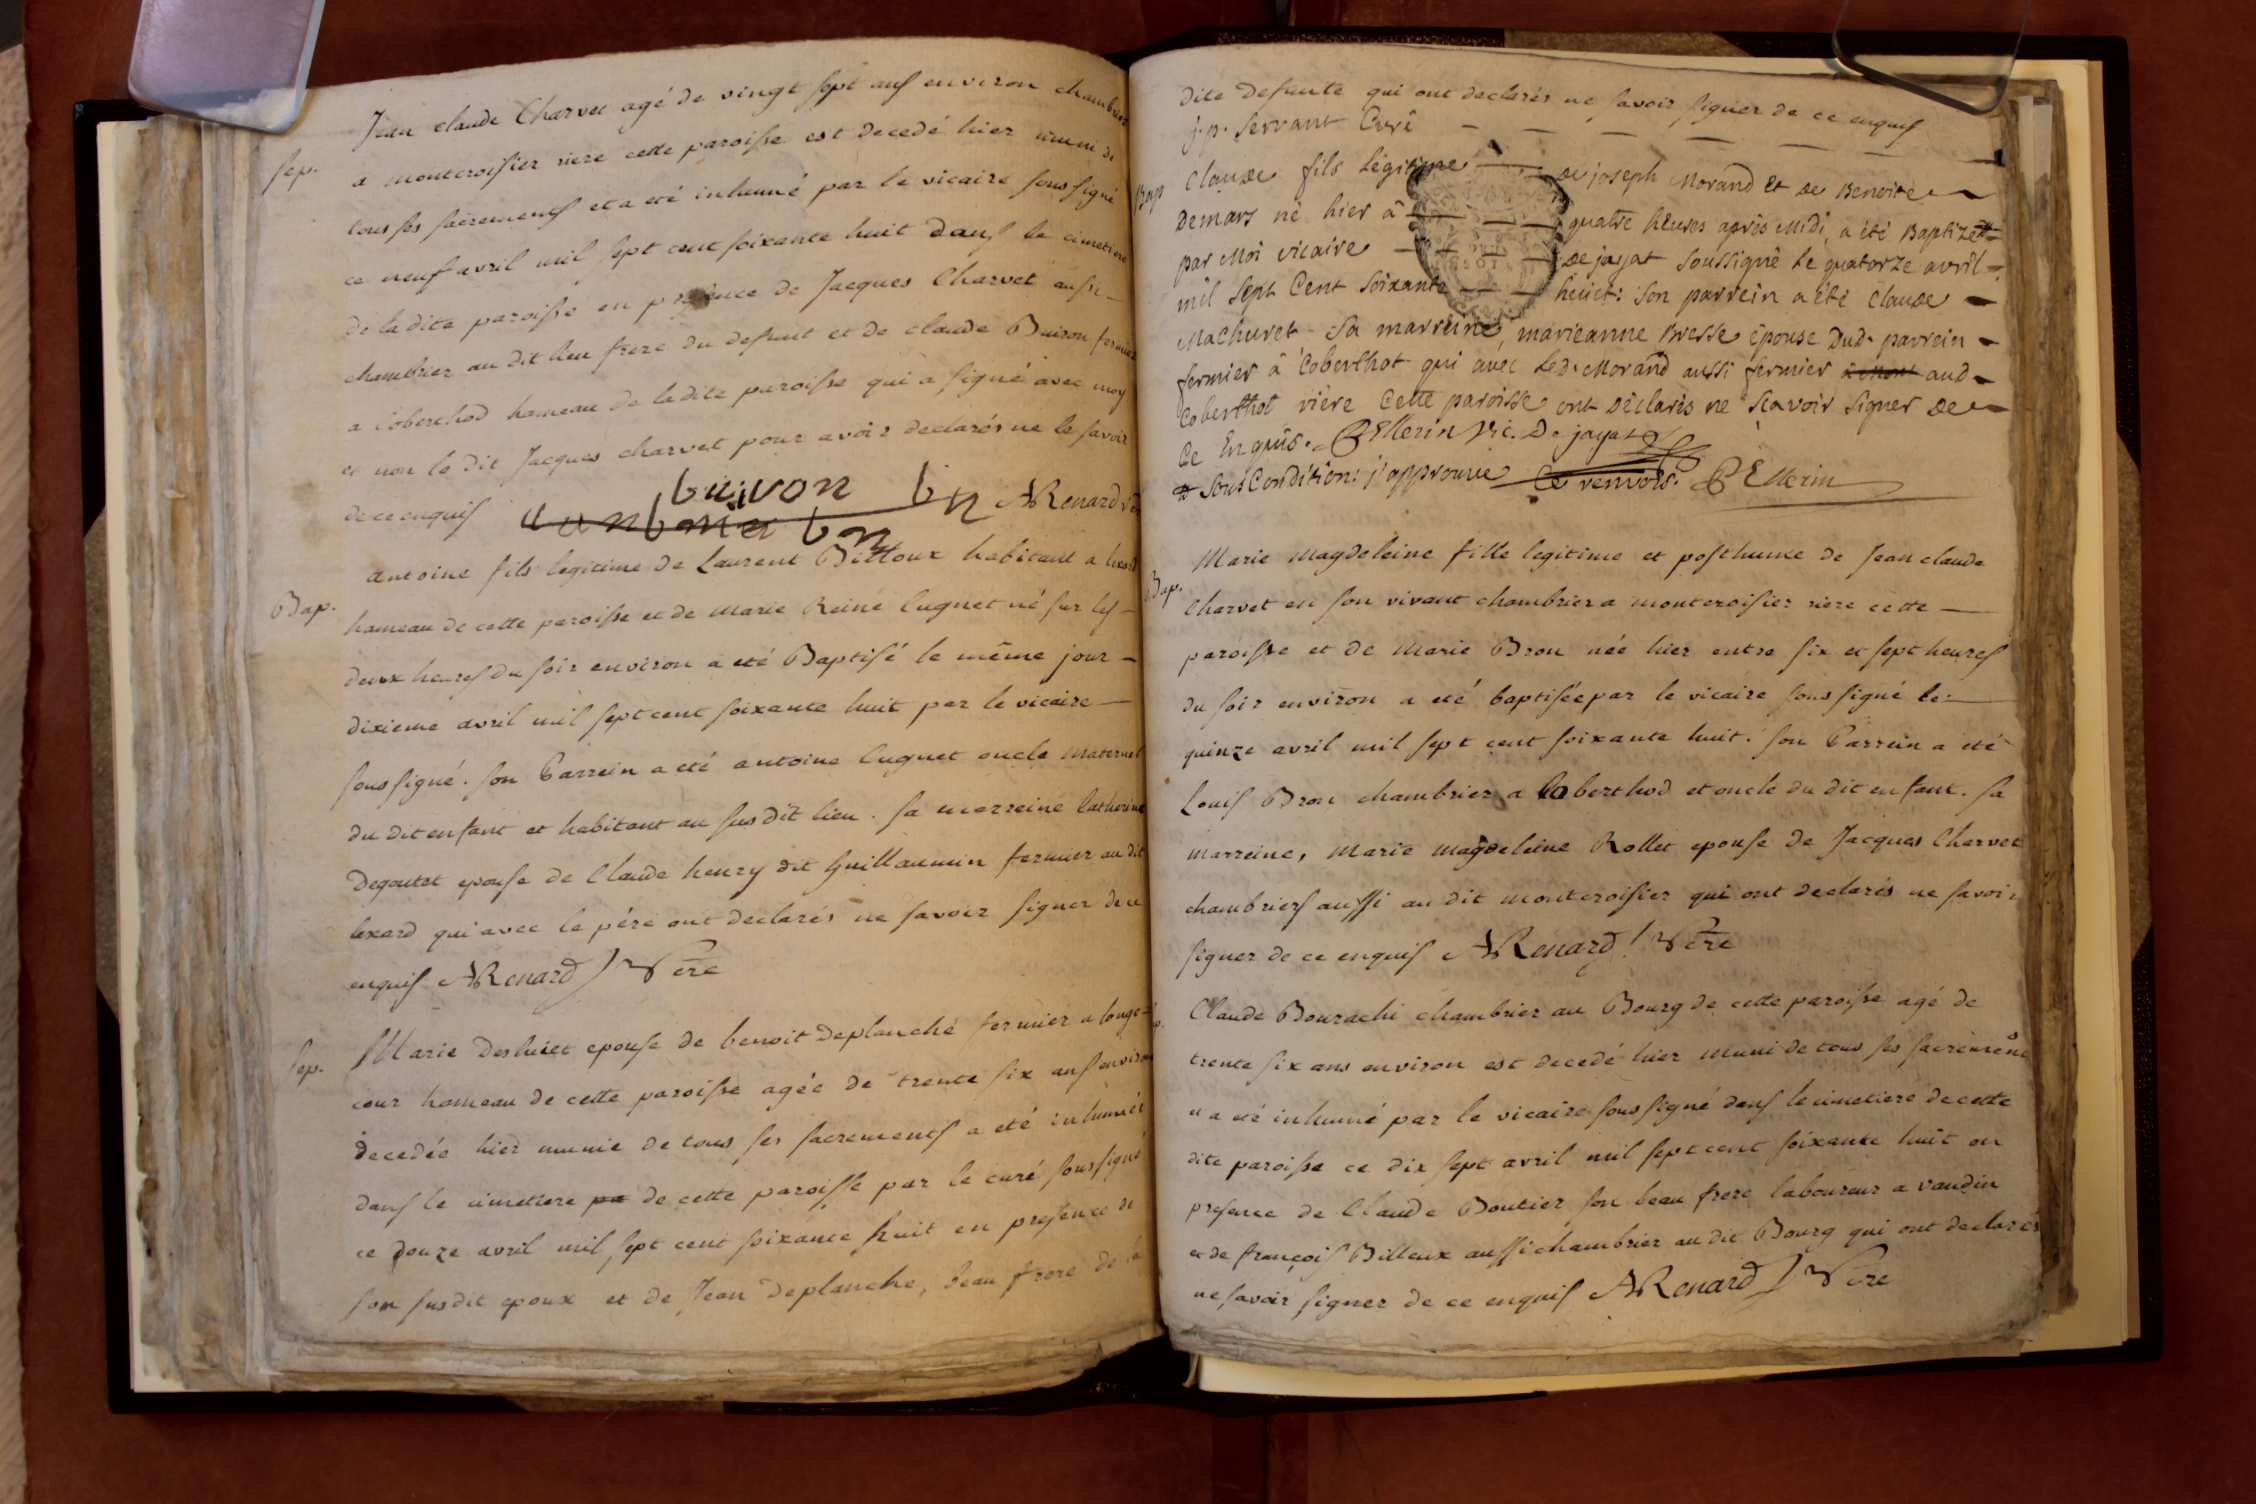 Jean claude Charvet agé de vingt sept ans environ chambrier
Sep.
a montcroisier riere cette paroisse est decedé hier muni de
tous ses sacrements et a eté inhumé par le vicaire sous signé
ce neuf avril mil sept cent soixante huit dans le cimetiere
de la dite paroisse en presence de Jacques Charvet aussi
chambrier au dit lieu frere du defunt et de claude Buiron fermier
a Coberthod hameau de la dite paroisse qui a signé avec moy
et non le dit Jacques charvet pour avoir declarés ne le savoir
de ce enquis
buiron bn ARenard
antoine fils legitime de Laurent Billoux habitant a lexard
Bap.
hameau de cette paroisse et de marie Reine Cuguet né sur les
deux heures du soir environ a eté Baptisé le même jour
dixieme avril mil sept cent soixante huit par le vicaire
sous signé. son Parrein a eté antoine Cuguet oncle maternel
du dit enfant et habitant au sus dit lieu. sa marreine Catherine
Degoutet epouse de Claude henry dit Guillaumin fermier au dit
lexard qui avec le pére ont declarés ne savoir signer de ce
enquis ARenard Vcre
Sep.
Marie Deshuiet epouse de benoit Deplanche fermier a longe
cour hameau de cette paroisse agée de trente six ans environ
decedée hier munie de tous ses sacrements a eté inhumée
dans le cimetiere pa de cette paroisse par le curé sous signé
ce douze avril mil sept cent soixante huit en presence de
son susdit epoux et de Jean Deplanche, beau frere de la
dite defunte qui ont declarés ne savoir signer de ce enquis
j. p. Servant Curé
Bap
Claude fils légitime de joseph Morand Et de Benoite
Demars né hier à quatre heures après Midi, a été Baptizé
par Moi vicaire De jayat Soussigné Le quatorze avril
mil Sept Cent Soixante huict: Son parrein a été Claude
Machuret Sa marreine, marieanne Bresse épouse Dud. parrein
fermier à Coberthot qui avec Led. Morand aussi fermier aud
Coberthot rière Cette paroisse ont Déclarés ne Scavoir Signer De
Ce Enquis. PEllerin Vic. De jayat
Sous Condition: j'approuve Ce renvois. PEllerin
Marie Magdeleine fille legitime et posthume de Jean claude
Bap.
Charvet en son vivant chambrier a montcroisier riere cette
paroisse et de Marie Bron née hier entre six et sept heures
du soir environ a eté baptisée par le vicaire sous signé le
quinze avril mil sept cent soixante huit. son Parrein a eté
Louis Bron chambrier a Coberthod et oncle du dit enfant. sa
Marreine, Marie Magdeleine Rollet epouse de Jacques Charvet
chambriers aussi au dit montcroisier qui ont declarés ne savoir
signer de ce enquis ARenard Vcre
Claude Bourachi chambrier au Bourg de cette paroisse agé de
trente six ans environ est decedé hier muni de tous ses sacrements
et a eté inhumé par le vicaire sous signé dans le cimetiere de cette
dite paroisse ce dix sept avril mil sept cent soixante huit en
presence de Claude Boutier son beau frere laboureur a vaudin
et de françois Billoux aussi chambrier au dit Bourg qui ont declarés
ne savoir signer de ce enquis ARenard Vcre